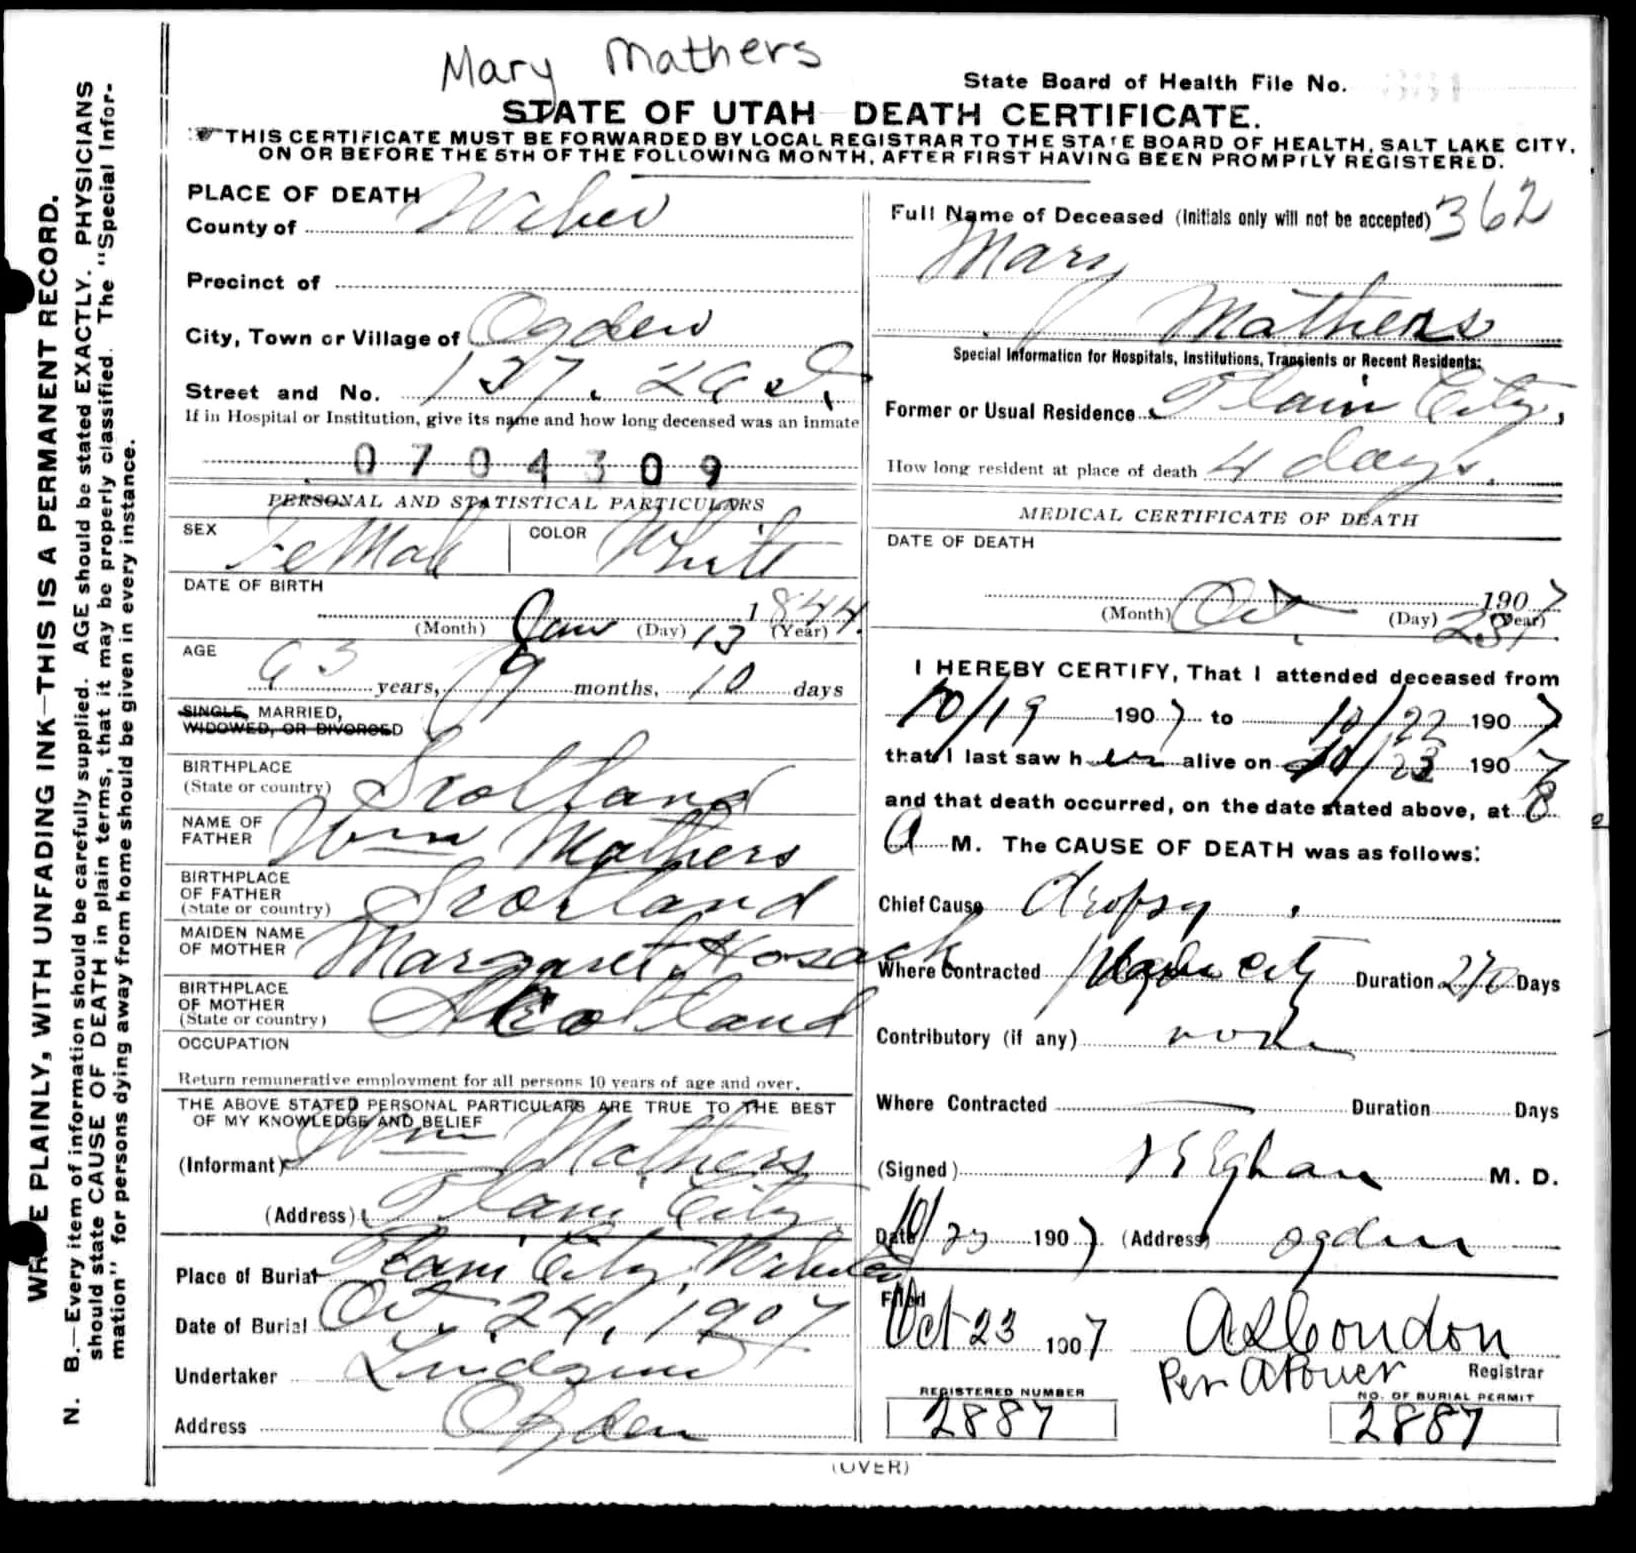 Mary Mathers
State Board of Health File No.
STATE OF UTAH DEATH CERTIFICATE.
THIS CERTIFICATE MUST BE FORWARDED BY LOCAL REGISTRAR TO THE STATE BOARD OF HEALTH, SALT LAKE CITY,
ON OR BEFORE THE 5TH OF THE FOLLOWING MONTH, AFTER FIRST HAVING BEEN PROMPTLY REGISTERED.
WRITE PLAINLY, WITH UNFADING INK—THIS IS A PERMANENT RECORD.
N. B.—Every item of information should be carefully supplied. AGE should be stated EXACTLY. PHYSICIANS
should state CAUSE OF DEATH in plain terms, that it may be properly classified. The "Special Infor-
mation" for persons dying away from home should be given in every instance.
PLACE OF DEATH
County of Weber
Precinct of
City, Town or Village of Ogden
Street and No. 137.
If in Hospital or Institution, give its name and how long deceased was an inmate
0704309
PERSONAL AND STATISTICAL PARTICULARS
SEX FeMale COLOR White
DATE OF BIRTH
(Month) Jan (Day) 13 (Year) 1844.
AGE
63 years, 9 months, 10 days
SINGLE, MARRIED,
WIDOWED, OR DIVORCED
BIRTHPLACE
(State or country) Scotland
NAME OF
FATHER Wm Mathers
BIRTHPLACE
OF FATHER
(State or country) Scotland
MAIDEN NAME
OF MOTHER Margaret Hosack
BIRTHPLACE
OF MOTHER
(State or country) Scotland
OCCUPATION
Return remunerative employment for all persons 10 years of age and over.
THE ABOVE STATED PERSONAL PARTICULARS ARE TRUE TO THE BEST
OF MY KNOWLEDGE AND BELIEF
(Informant) Wm Mathers
(Address) Plain City
Place of Burial Plain City, Weber Co
Date of Burial Oct. 24, 1907
Undertaker Lindquist
Address Ogden
Full Name of Deceased (Initials only will not be accepted) 362
Mary
Mathers
Special Information for Hospitals, Institutions, Transients or Recent Residents:
Former or Usual Residence Plain City,
How long resident at place of death 4 days.
MEDICAL CERTIFICATE OF DEATH
DATE OF DEATH
1907
(Month) Oct. (Day) 23, (Year)
I HEREBY CERTIFY, That I attended deceased from
10/19 1907 to 10/22 1907
that I last saw her alive on 10/22 1907
and that death occurred, on the date stated above, at 8
A M. The CAUSE OF DEATH was as follows:
Chief Cause dropsy
Where Contracted Plain City Duration 270 Days
Contributory (if any) none
Where Contracted Duration Days
(Signed) M. D.
Date 10/23 1907 (Address) Ogden
Filed
Oct 23 1907 A S Condon
Per A Power Registrar
REGISTERED NUMBER
2887
NO. OF BURIAL PERMIT
2887
(OVER)